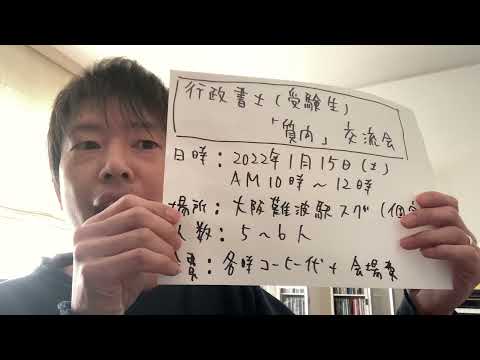 行政書士(受験生)
「質問」交流会
日時:2022年1月15日(土)
AM10時~12時
場所:大阪難波駅スグ(個室
人数:5~6人
費:各自コーヒー代+会場費